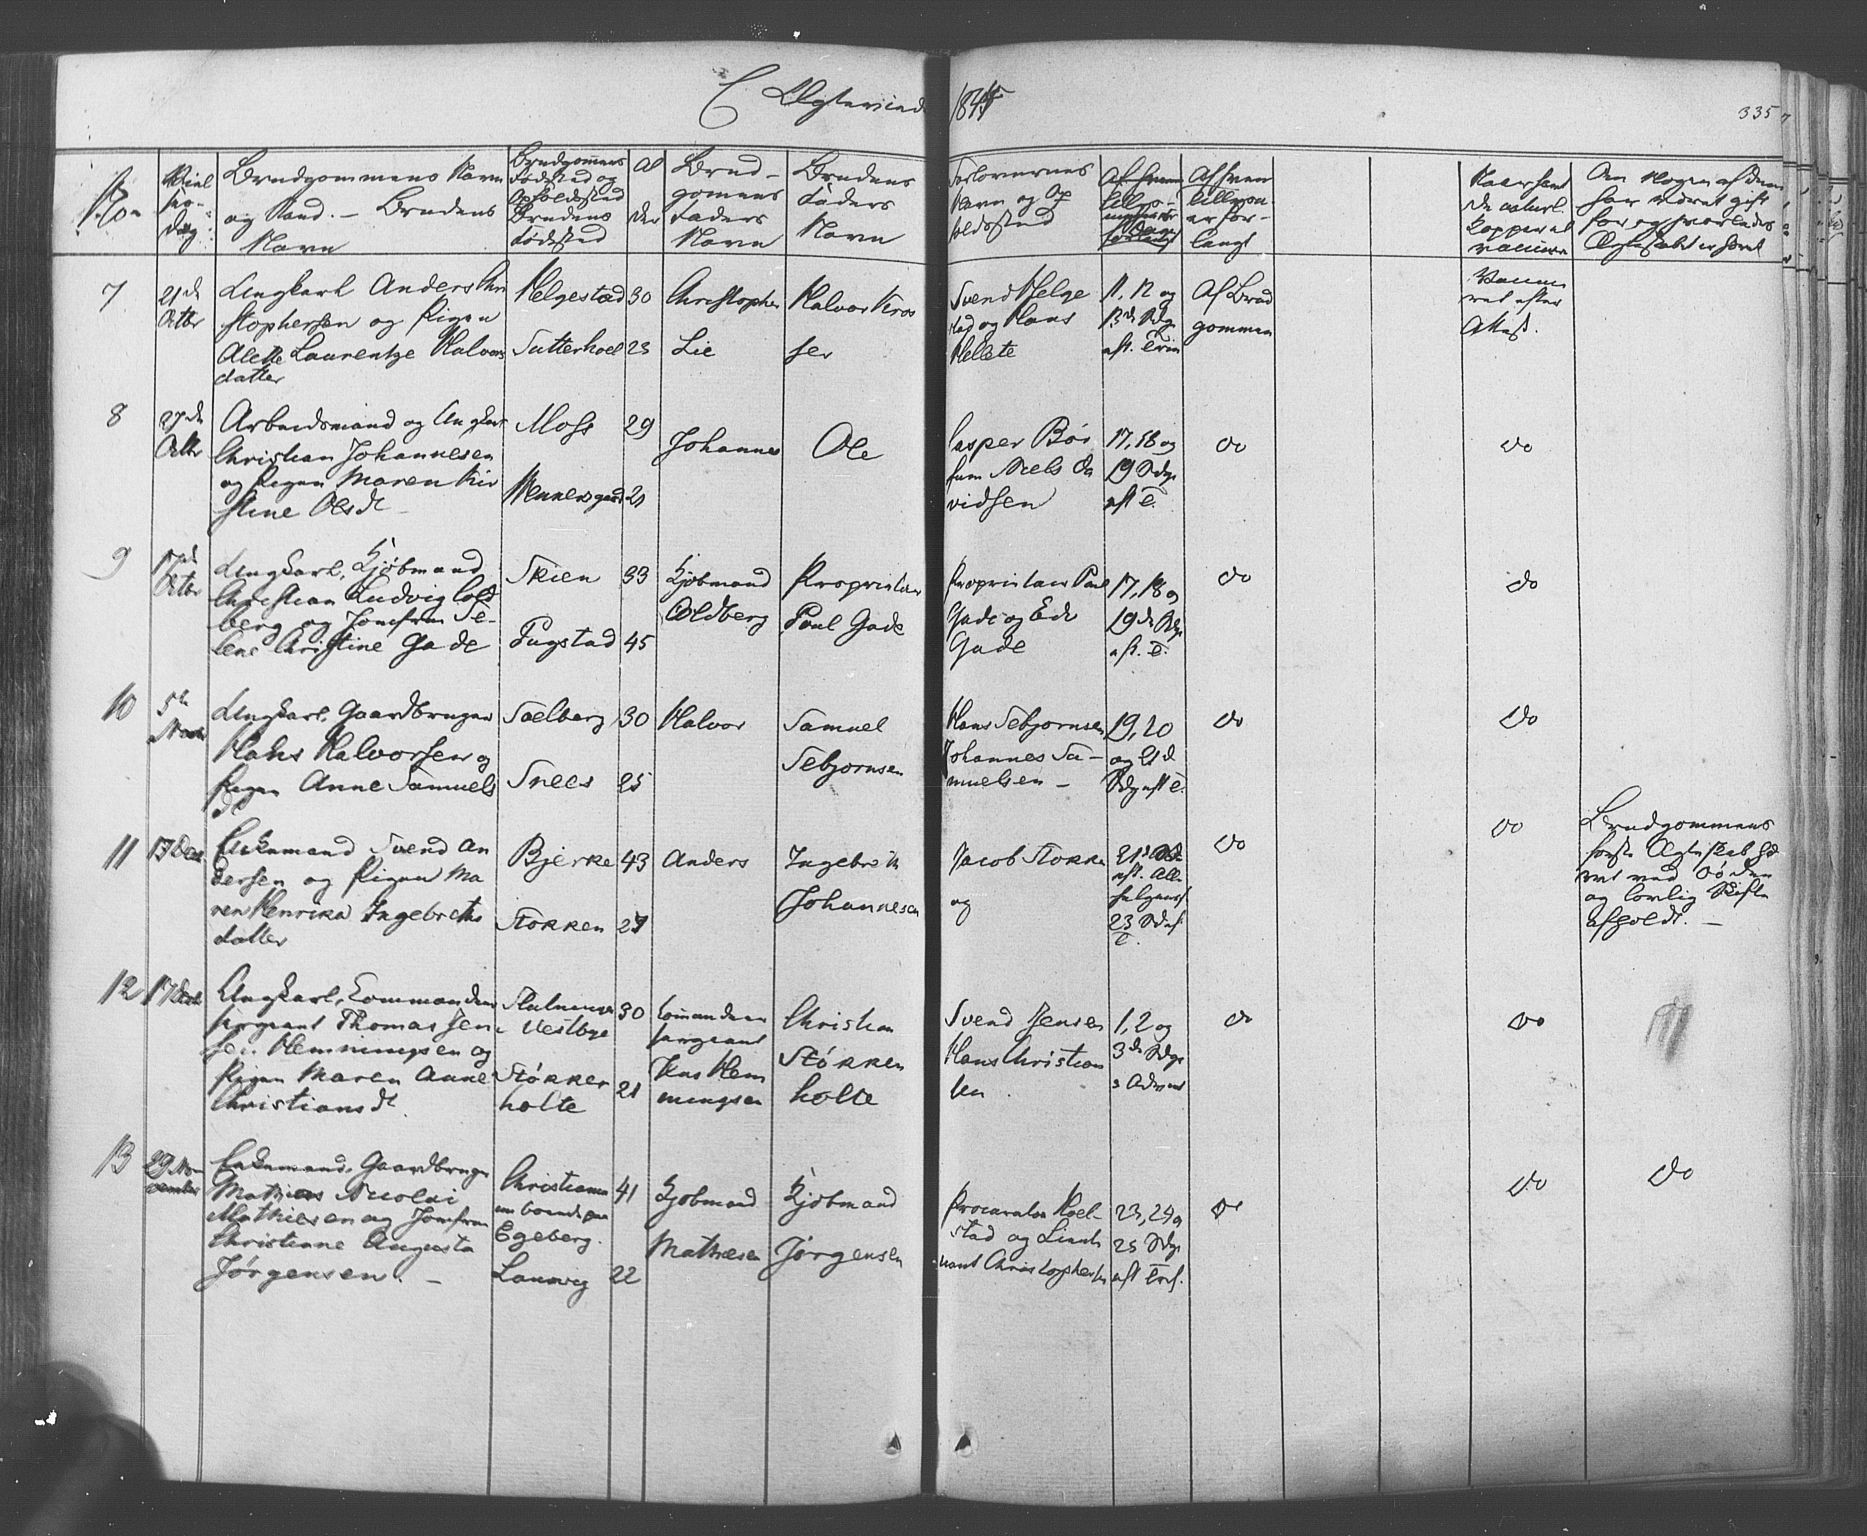 C Ægteviede 1845
335
No
Viel
se-
dag
Brudgommens Navn
og Stand. - Brudens
Navn
Brudgommens
Fødested og
Opholdsted
Brudens
Fødested
Al
der
Brud-
gomens
Faders
Navn
Brudens
Faders
Navn
Forlovernes
Navn og Op
holdssted
Af hvem
tillys-
Af hvem
tillysn.
er for-
langt
Naar havt
de naturl.
Kopper el
vaccineret
Om Nogen af dem
har været gift
før og hvorledes
Ægteskabet er hævet
7
21de
Octbr
Ungkarl Anders Chri
stophersen og Pigen
Alette Laurentze Halvors
datter
Helgestad
30
Sutterhoel
23
Christopher
Lie
Halvor Kros
ser
Svend Helge
stad og Hans
11, 12 og
13de Sdg
eft. Trin
Af Brud
gommen
Vaccine
ret efter
Attest.
8
27de
Octbr
Arbeidsmand og Ungkarl
Christian Johannesen
og Pigen Maren Kir
stine Olsdt -
Moss
29
21
Johannes
Ole
Casper Bör
sum Niels Da
vidsen
17, 18 og
19 Sdge
eft T.
do
do
9
17de
Octbr
Ungkarl, Kjöbmand
Christian Ludvig Cold
berg og Jomfru Se-
lene Christine Gade
Skien
33
Fugstad
45
Kjöbmand
Coldberg
Proprietær
Poul Gade
Proprietær Poul
Gade og Ede
Gade
17, 18 og
19de Sdge
eft. T.
do
do
10
5te
Novbr
Ungkarl, Gaardbruger
Hans Halvorsen og
Pigen Anne Samuels
dt
Soelberg
30
Snees
25
Halvor
Samuel
Sebjornsen
Hans Sebjornsen
Johannes Sa-
muelsen -
19, 20
og 21de
Sdg eft T.
do
do
11
13 Decb
Enkemand Svend An
dersen og Pigen Ma
ren Henrika Ingebrets
datter
Bjerke
43
Stokken
27
Anders
Ingebret
Johannesen
Jacob Stokke
og
21de Sd.
eft. Alle
helgens
23 Sd ef
T.
do
do
Brudgommens
første Ægteskab hæ
vet ved Døden
og lovlig Skifte
afholdt. -
12
17 Decb
Ungkarl, Commandeer
sergeant Thomas Jen
sen Hemmingsen og
Pigen Maren Anne
Christiansdt
i Vestbye
30
Støkken
holte
21
Comandeer
sergeant
Jens Hem
mingsen
Christian
Støkken
holte
Svend Jensen
Hans Christian
sen
1, 2 og
3de Sdge
i Advent
do
do
13
29 No-
vember
Enkemand, Gaardbruger
Mathias Nicolai
Mathiesen og Jomfru
Christiane Augusta
Jörgensen. -
Christiania
nu boende paa
Egeberg.
41
Laurvig
22
Kjöbmand
Mathiesen
Kjöbmand
Jörgensen
Procurator Hoel-
stad og Lieute
nant Christophersen
23, 24 og
25 Sdge
eft Trif.
do
do
do